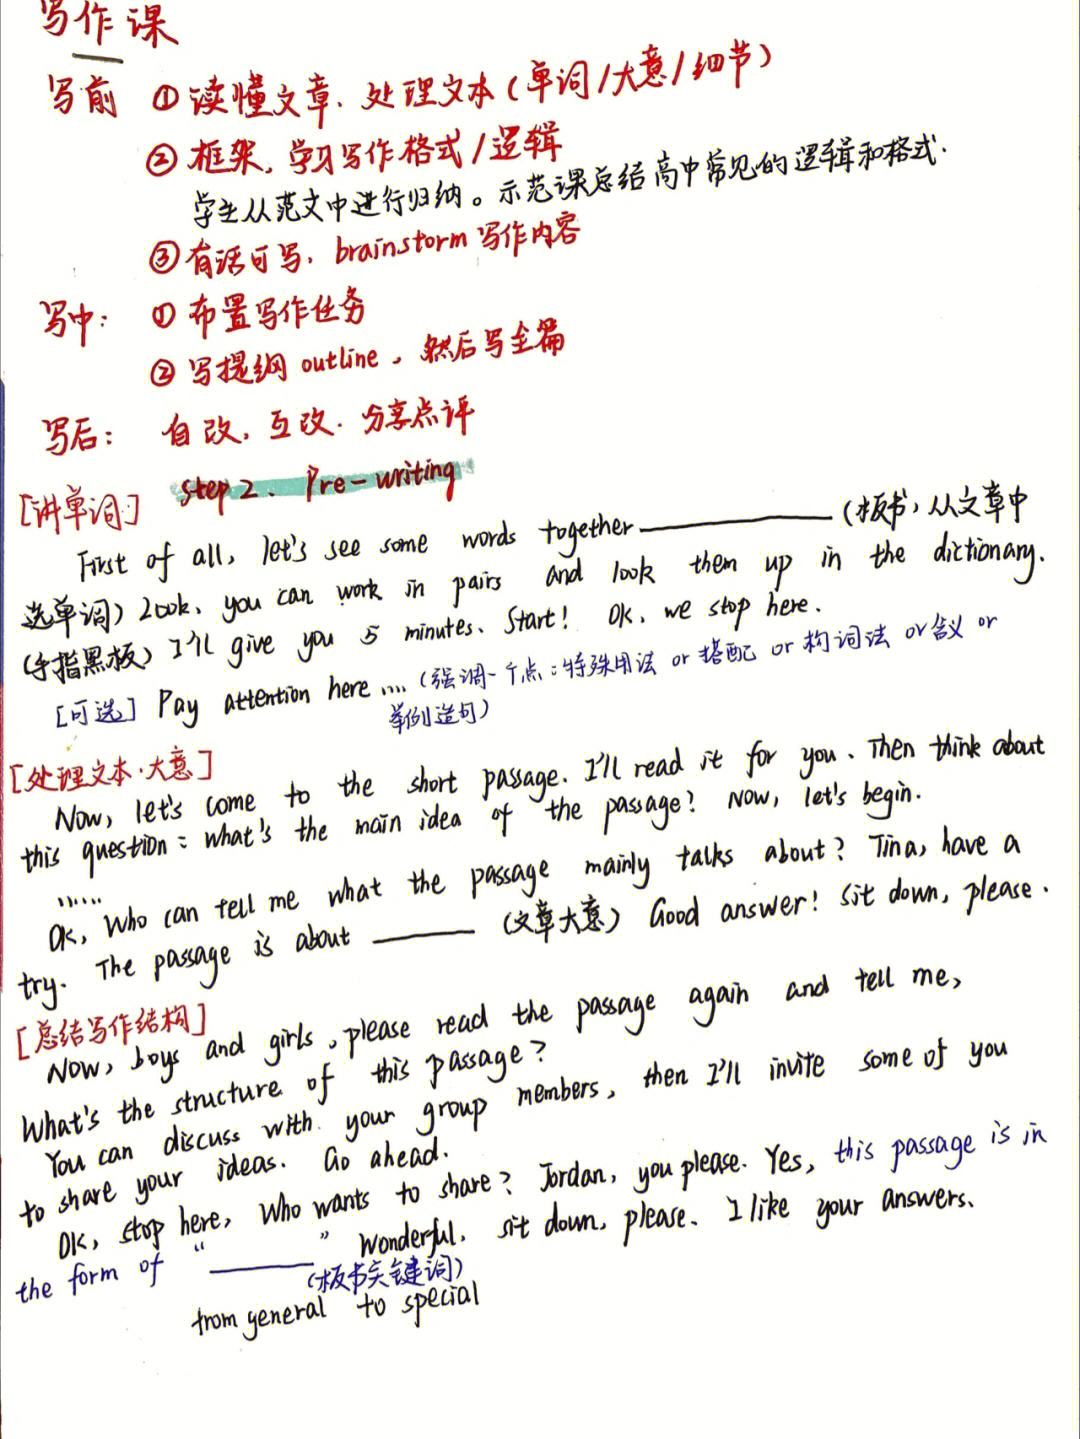 写作课
写前 ① 读懂文章、处理文本(单词/大意/细节)
② 框架,学习写作格式/逻辑
学生从范文中进行归纳。示范课总结高中常见的逻辑和格式.
③ 有话可写, brainstorm 写作内容
写中: ① 布置写作任务
② 写提纲 outline, 然后写全篇
写后: 自改, 互改. 分享点评
Step 2、 Pre-writing
[讲单词]
First of all, let's see some words together ________ (板书, 从文章中
选单词) Look, you can work in pairs and look them up in the dictionary.
(手指黑板) I'll give you 5 minutes、Start! OK, we stop here.
[可选] Pay attention here .... (强调一个点:特殊用法 or 搭配 or 构词法 or 含义 or
举例造句)
[处理文本·大意]
Now, let's come to the short passage. I'll read it for you、Then think about
this question: what's the main idea of the passage? Now, let's begin.
......
OK, Who can tell me what the passage mainly talks about? Tina, have a
try. The passage is about ______ (文章大意) Good answer! Sit down, please.
[总结写作结构]
Now, boys and girls, please read the passage again and tell me,
What's the structure of this passage?
You can discuss with your group members, then I'll invite some of you
to share your ideas. Go ahead.
OK, stop here, Who wants to share? Jordan, you please. Yes, this passage is in
the form of "________" Wonderful, sit down, please. I like your answers.
(板书关键词)
from general to special